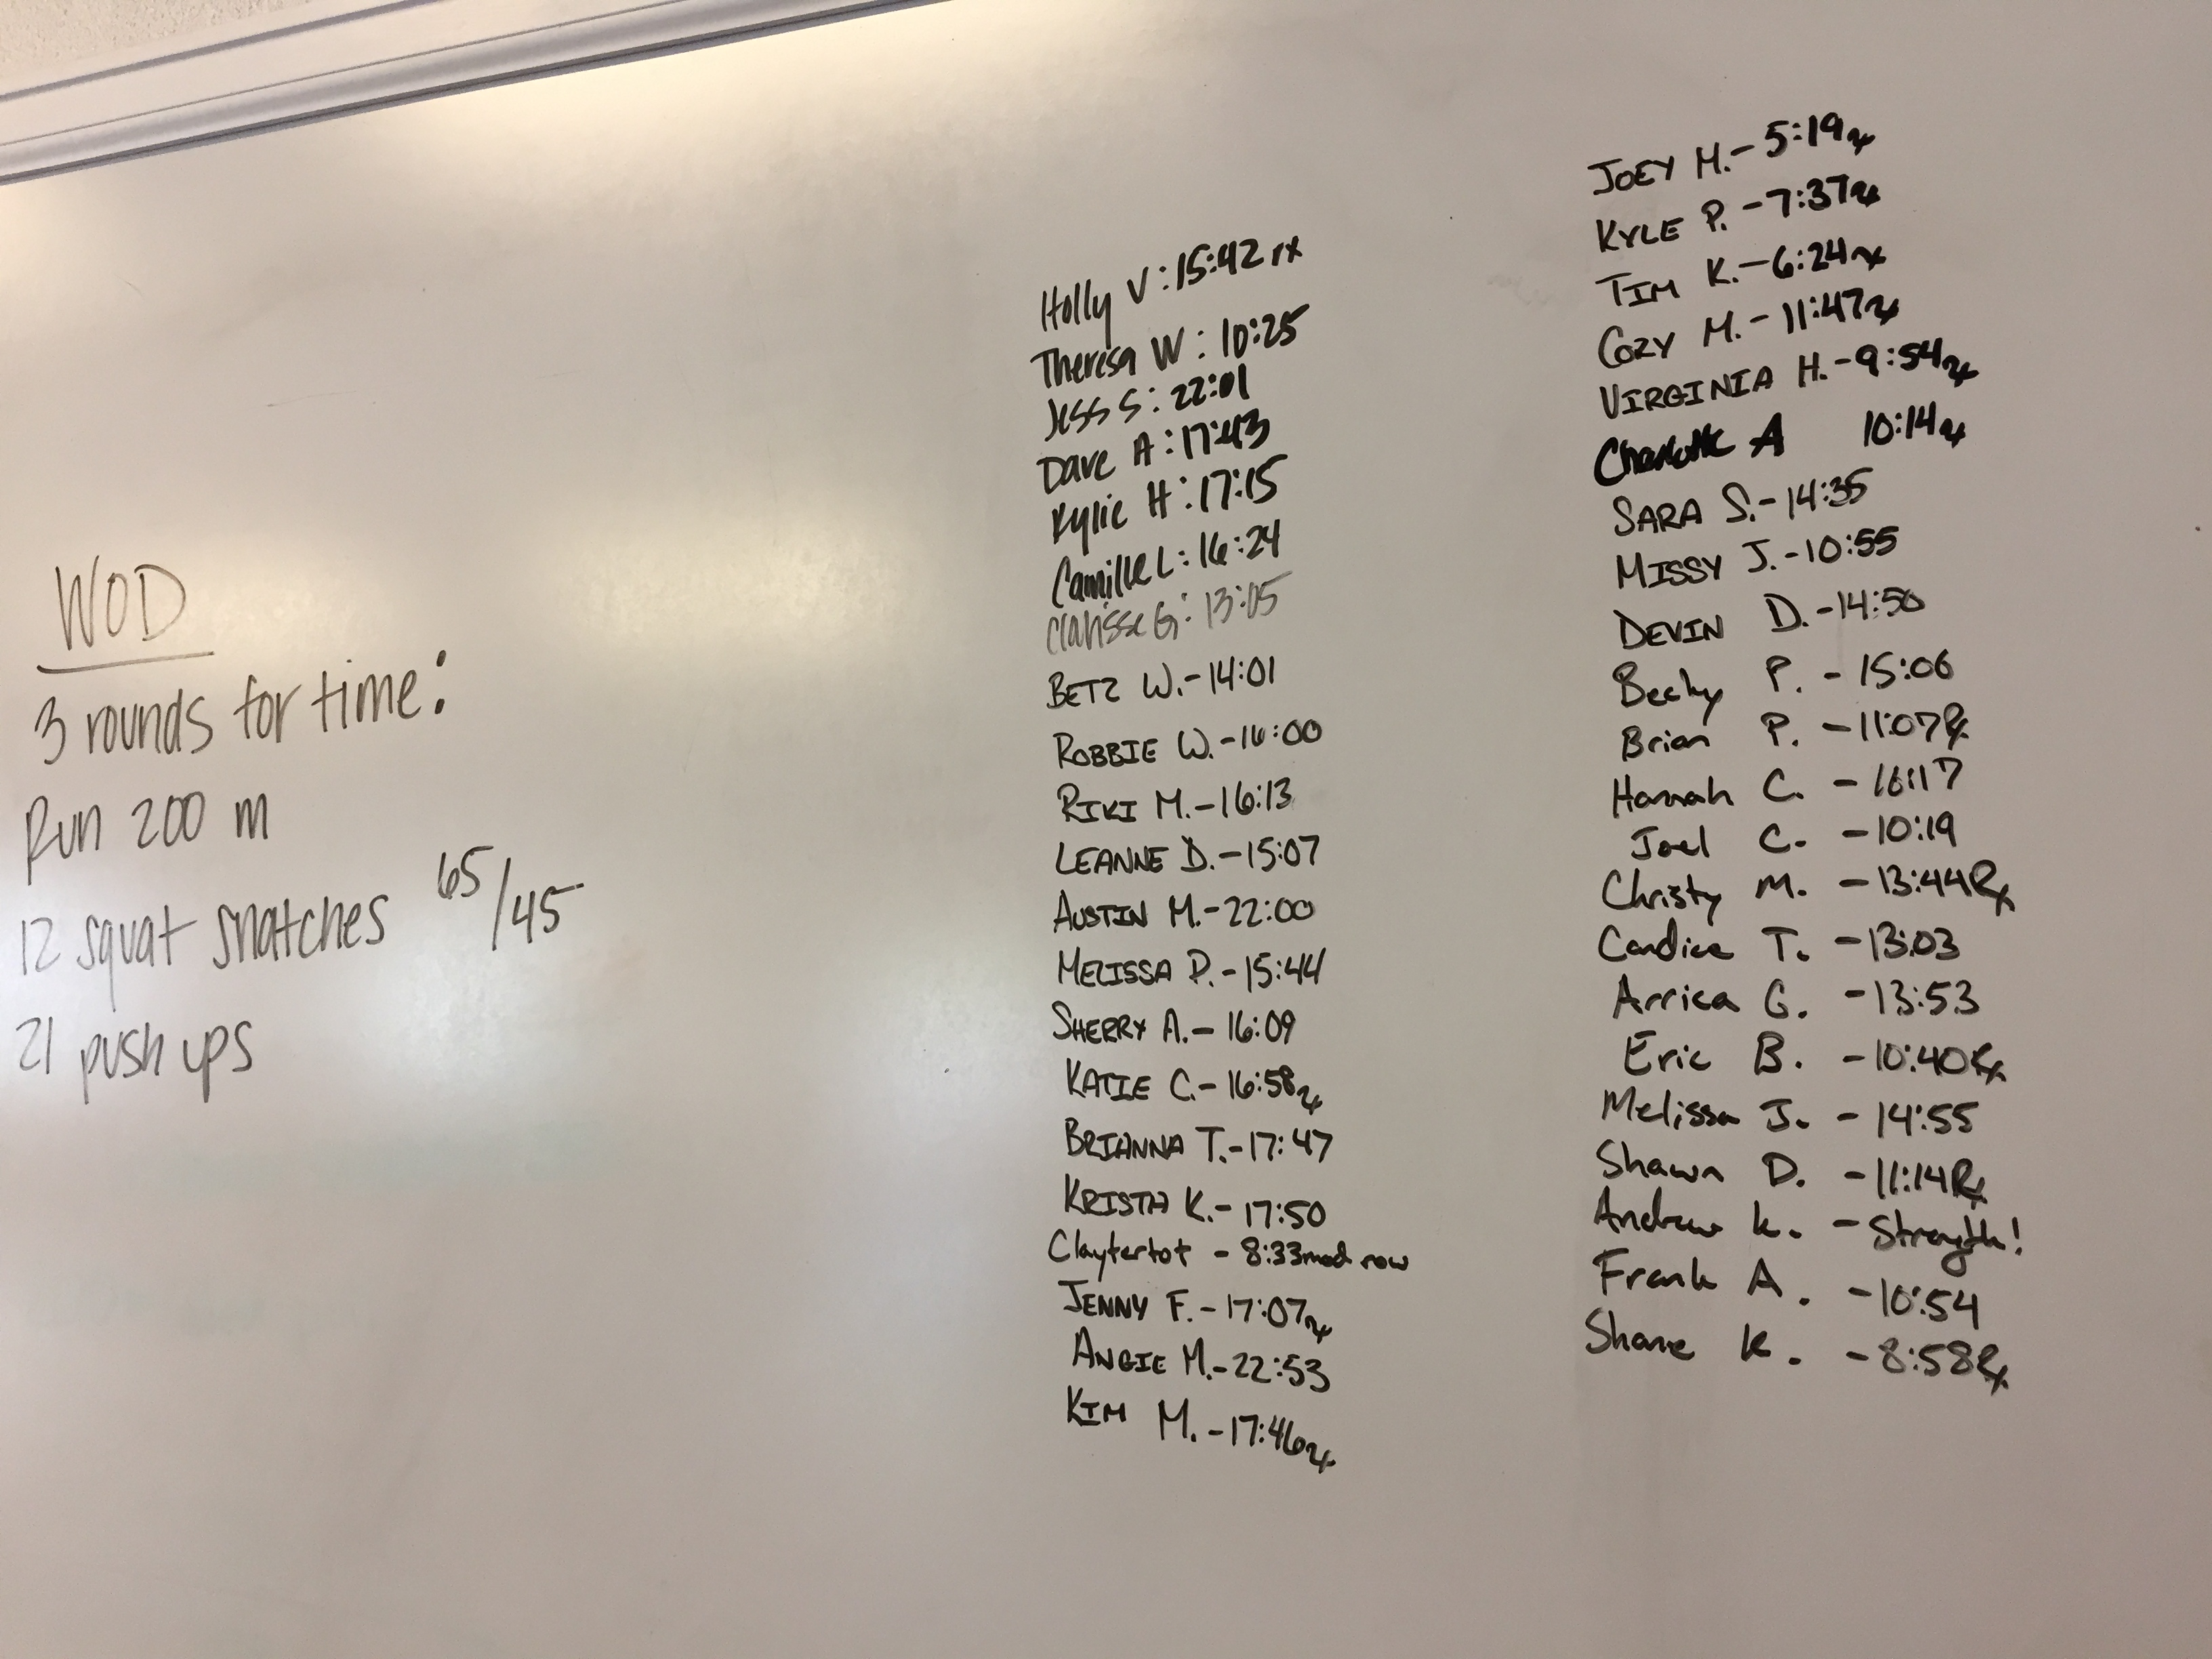 WOD
3 rounds for time:
Run 200 m
12 squat snatches 65/45
21 push ups
Holly V: 15:42 rx
Theresa W: 10:25
Jess S: 22:01
Dave A: 17:43
Kylie H: 17:15
Camille L: 16:24
Clarisse G: 13:05
BETZ W.-14:01
ROBBIE W.-16:00
RIKI M.-16:13
LEANNE D.-15:07
AUSTIN M.-22:00
MELISSA P.-15:44
SHERRY A.-16:09
KATIE C.-16:58rx
BRIANNA T.-17:47
KRISTA K.-17:50
Claytertot - 8:33mod row
JENNY F.-17:07rx
ANGIE M.-22:53
KIM M.-17:46rx
JOEY M.-5:19rx
KYLE P.-7:37rx
TIM K.-6:24rx
COZY M.-11:47rx
VIRGINIA H.-9:54rx
Charlotte A 10:14rx
SARA S.-14:35
MISSY J.-10:55
DEVIN D.-14:50
Becky P. - 15:06
Brian P. - 11:07Rx
Hannah C. - 16:17
Joel C. - 10:19
Christy M. - 13:44Rx
Candice T. - 13:03
Arrica G. - 13:53
Eric B. - 10:40Rx
Melissa J. - 14:55
Shawn D. - 11:14Rx
Andrew K. - Strength!
Frank A. - 10:54
Shane K. - 8:58Rx